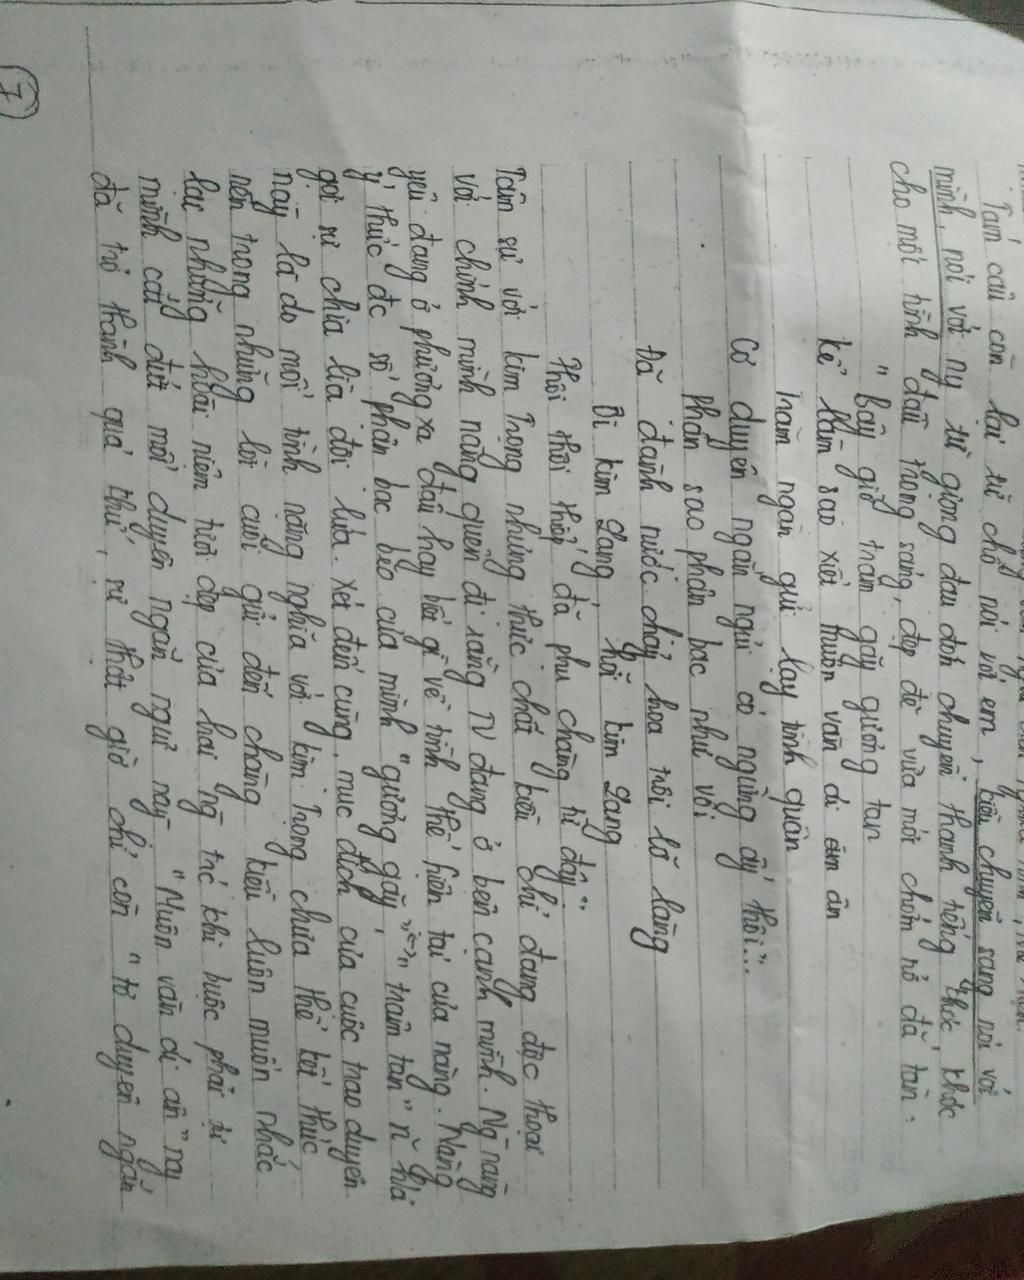 Tám câu còn lại từ chỗ nói với em, kiều chuyển sang nói với
mình, nói với ng từ giọng đau đớn chuyển thành tiếng thóc, khóc
cho một tình đầu trong sáng, đẹp đẽ vừa mới chớm nở đã tàn:
" bây giờ trâm gãy gương tan
kể làm sao xiết muôn vàn ái ân
Trăm ngàn gửi lạy tình quân
Cơ duyên ngắn ngủi có ngừng ấy thôi"...
Phận sao phận bạc như vôi
Đã đành nước chảy hoa trôi lỡ làng
Ôi kim Lang, hỡi kim Lang
Thôi thôi thiếp đã phụ chàng từ đây"
Tâm sự với kim Trọng nhưng thức chất kiều chỉ đang độc thoại
với chính mình nàng quên đi rằng TV đang ở bên cạnh mình. Ng nàng
yêu đang ở phương xa đâu hay biết gì về tình thế hiện tại của nàng. Nàng
ý thức đc số phận bạc bẽo của mình "gương gãy", "trâm tan"
gợi sự chia lìa đôi lứa. xét đến cùng, mục đích của cuộc trao duyên
này là do mối tình nặng nghĩa với kim Trọng chưa thể kết thúc
nên trong những lời cuối gửi đến chàng kiều luôn muốn nhắc
lại những hoài niệm tươi đẹp của hai ng trc khi buộc phải tự
mình cắt đứt mối duyên ngắn ngủi này. "Muôn vàn ái ân" nay
đã trở thành quá khứ, sự thật giờ chỉ còn "tơ duyên ngắn
7